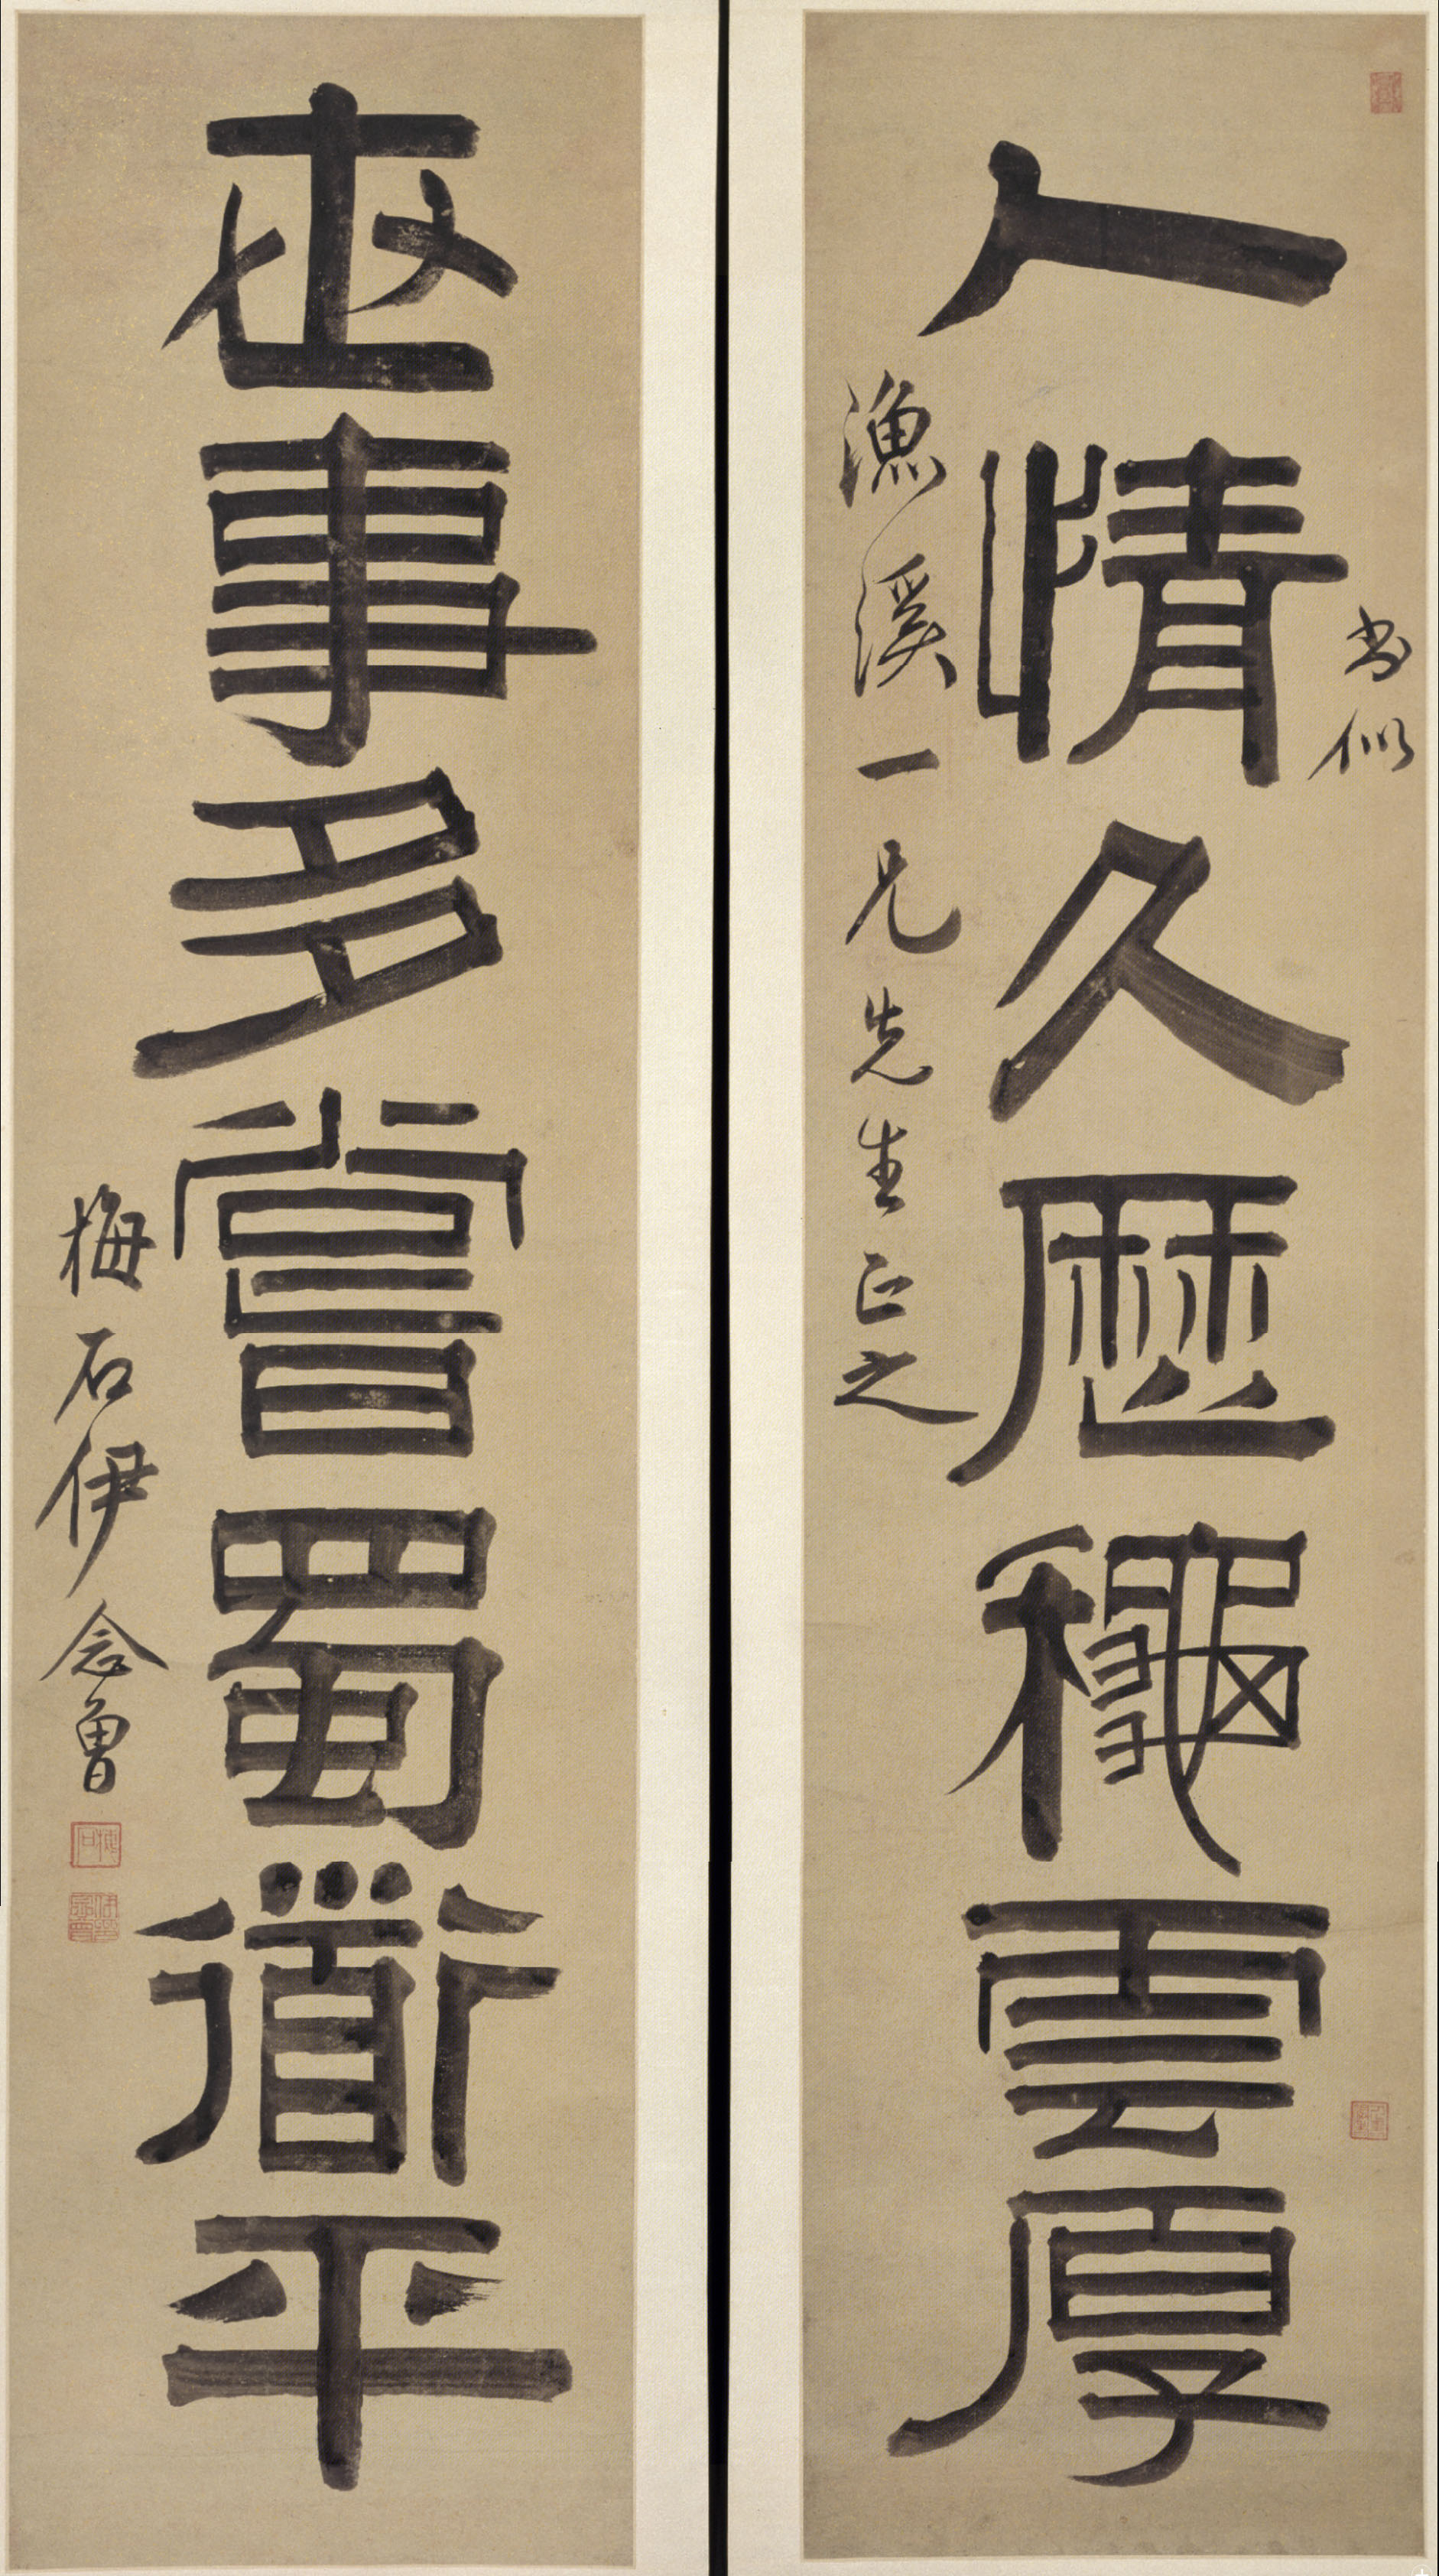 書似
人情久歷龝雲厚
漁溪一兄先生正之
世事多嘗蜀衜平
梅石伊念曾
梅石